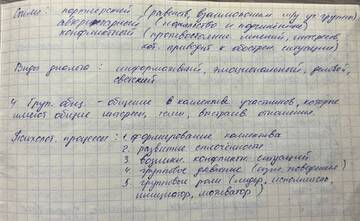 Стили: партнерский (равенств, взаимопоним м/у уч. группы)
авторитарный (начальство и подчинённый)
конфликтный (противостояние мнений, интересов,
кот. приводит к обострен. ситуации)
Виды диалога: информативный, эмоциональный, деловой,
светский
4 Груп. общ. - общение в коллективе участников, которые
имеют общие интересы, темы, отношения.
Психол. процессы: 1 формирование коллектива
2. развитие сплочённости
3. возникн. конфликтн. ситуаций
4 групповое давление (поведения)
5 групповые роли (лидер, исполнитель,
инициатор, мотиватор)